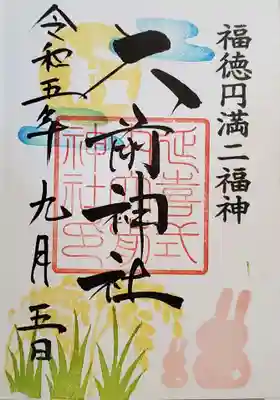 福徳円満二福神
大前神社
延喜式
内大前
神社印
令和五年九月五日